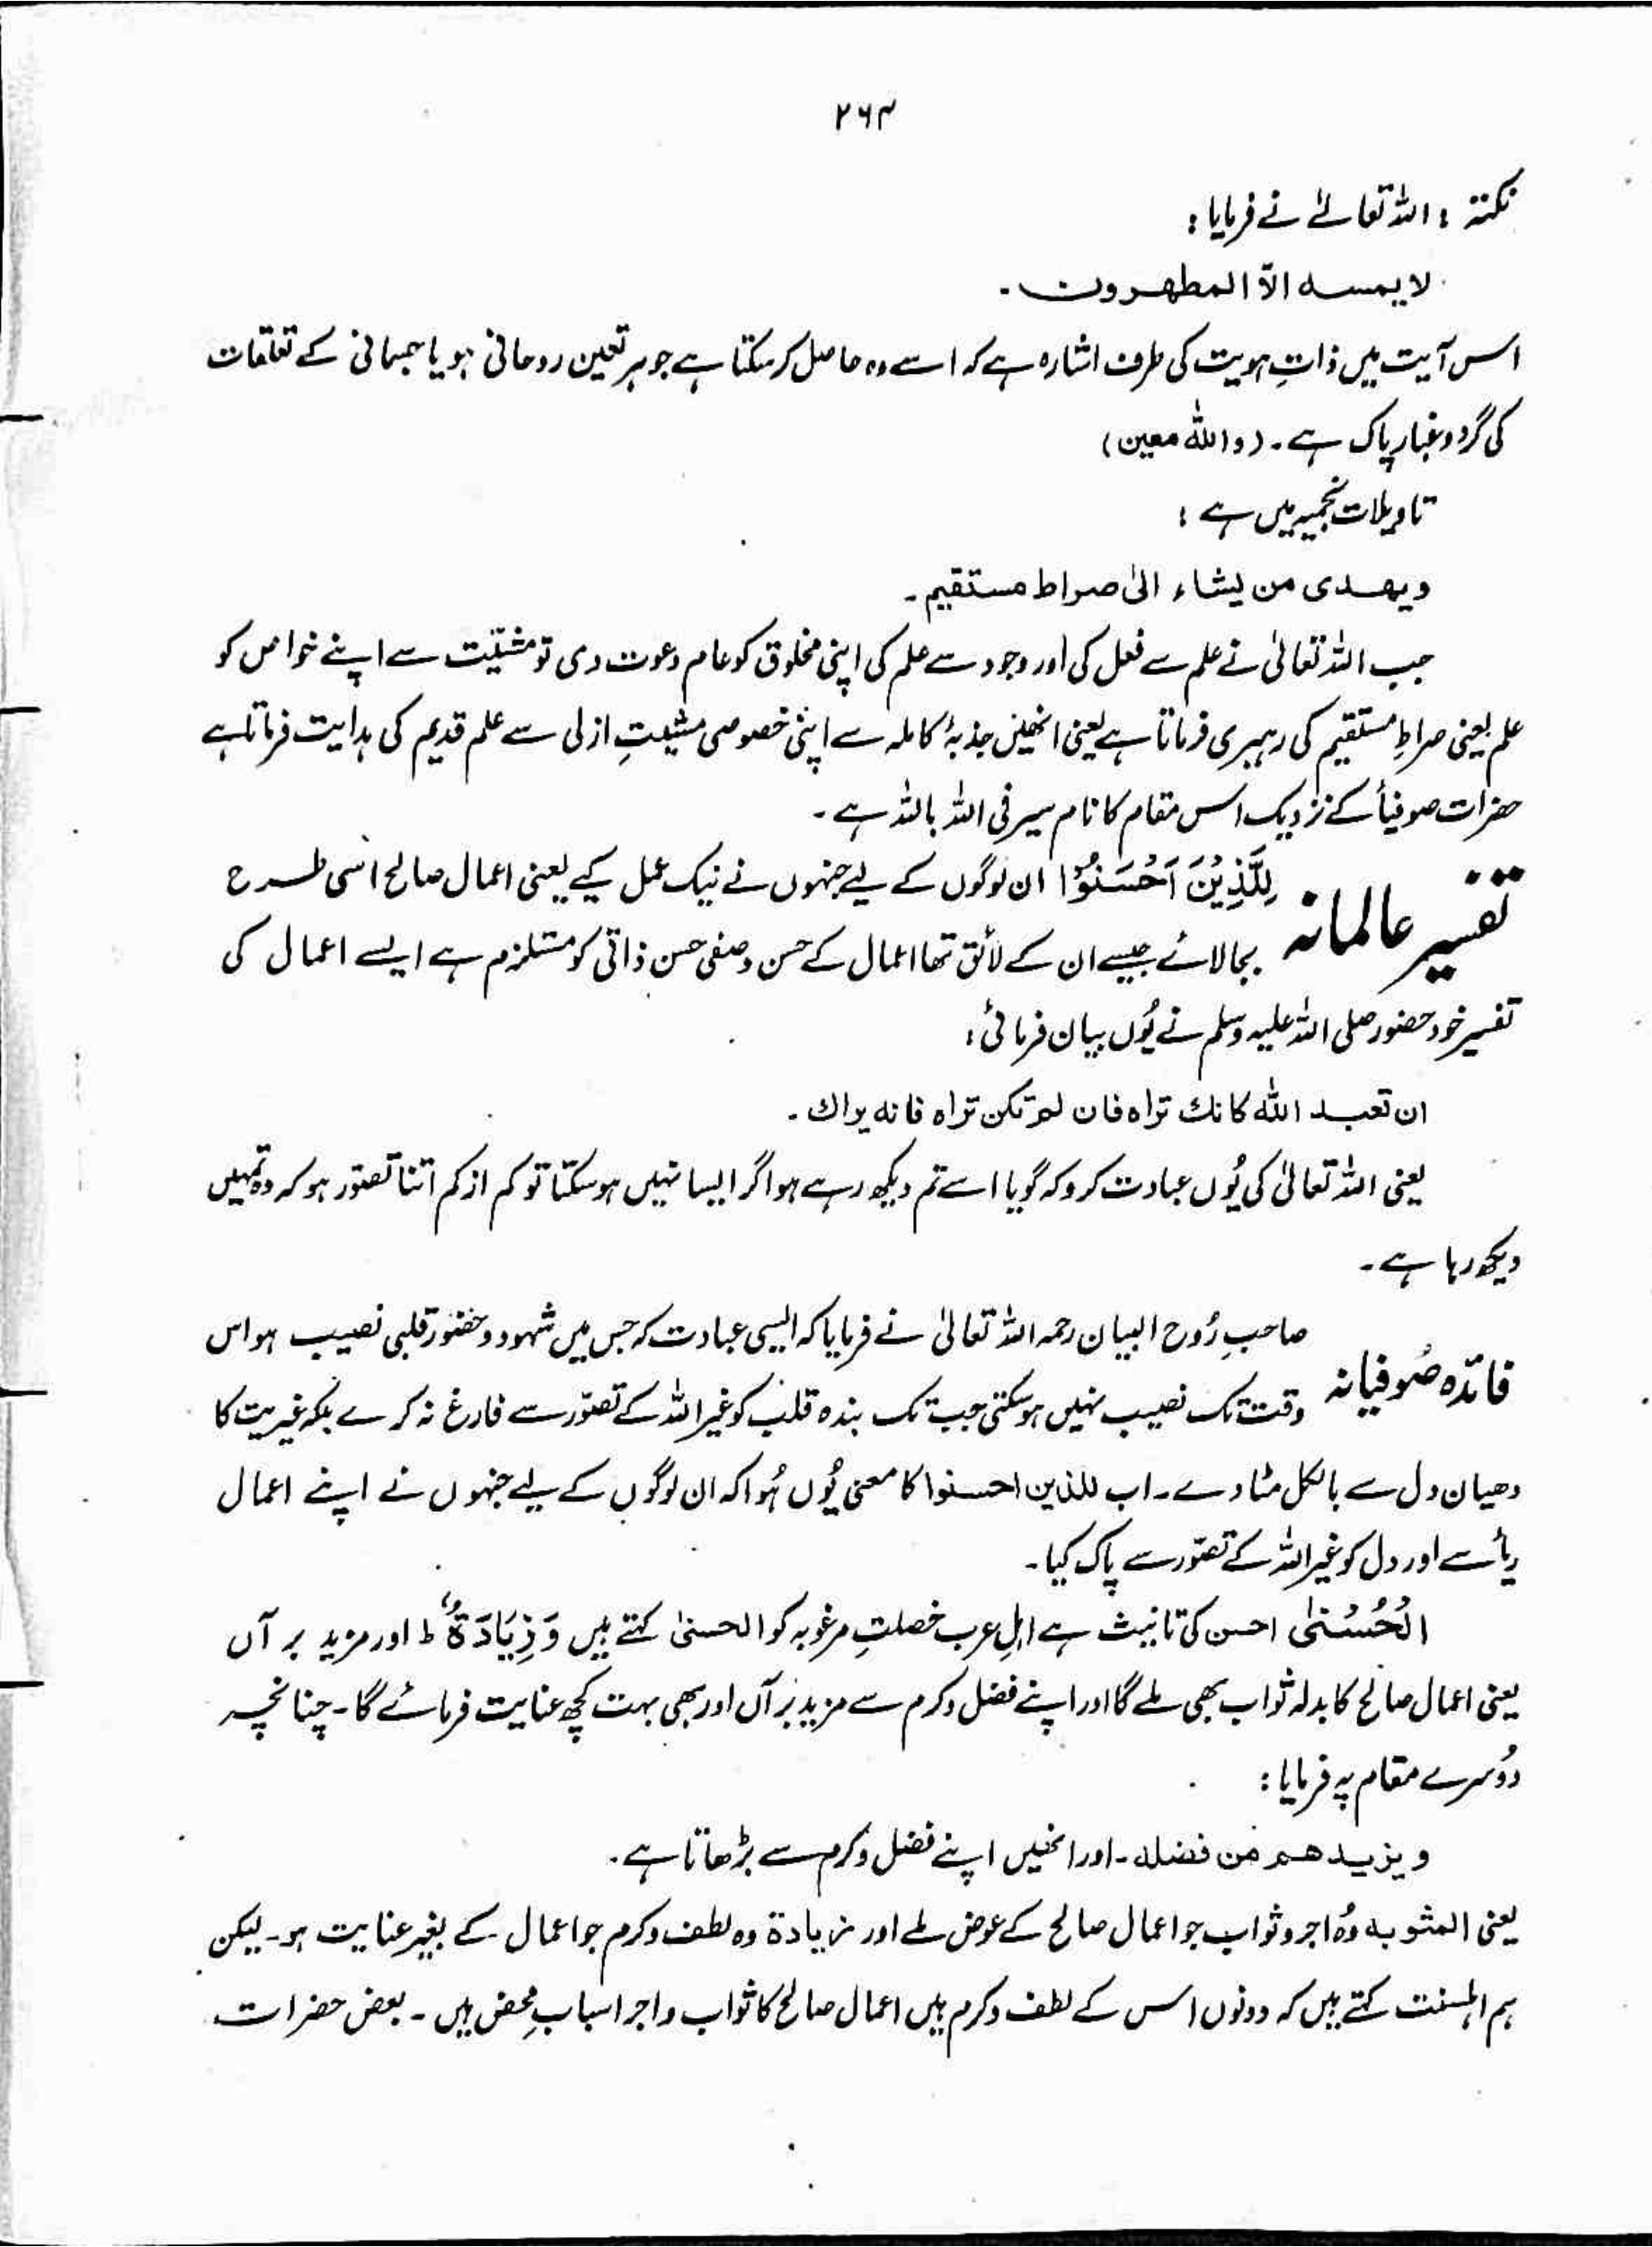 ۲۶۴
نکتہ : اللہ تعالےٰ نے فرمایا :
لا یمسہ الّا المطہرون ۔
اس آیت میں ذاتِ ہویت کی طرف اشارہ ہے کہ اسے وہ حاصل کرسکتا ہے جو ہر تعین روحانی ہو یا جسمانی کے تعلقات
کی گرد و غبار پاک ہے ۔ (واللہ معین)
تاویلات نجمیہ میں ہے :
ویھدی من یشاء الیٰ صراط مستقیم ۔
جب اللہ تعالیٰ نے علم سے فعل کی اور وجود سے علم کی اپنی مخلوق کو عام دعوت دی تو مشیّت سے اپنے خواص کو
علم یعنی صراطِ مستقیم کی رہبری فرماتا ہے یعنی انھیں جذبۂ کاملہ سے اپنی خصوصی مشیتِ ازلی سے علم قدیم کی ہدایت فرماتا ہے
حضرات صوفیأ کے نزدیک اس مقام کا نام سیر فی اللہ باللہ ہے ۔
تفسیر عالمانہ لِلَّذِیْنَ اَحْسَنُوْا ان لوگوں کے لیے جنہوں نے نیک عمل کیے یعنی اعمال صالح اسی طرح
بجا لائے جیسے ان کے لائق تھا اعمال کے حسن وصفی حسن ذاتی کو مستلزم ہے ایسے اعمال کی
تفسیر خود حضور صلی اللہ علیہ وسلم نے یُوں بیان فرمائی :
ان تعبد اللہ کانك تراہ فان لم تکن تراہ فانه یراك ۔
یعنی اللہ تعالیٰ کی یُوں عبادت کرو کہ گویا اسے تم دیکھ رہے ہو اگر ایسا نہیں ہوسکتا تو کم از کم اتنا تصوّر ہو کہ وہ تمہیں
دیکھ رہا ہے ۔
فائدہ صُوفیانہ صاحبِ رُوح البیان رحمہ اللہ تعالیٰ نے فرمایا کہ ایسی عبادت کہ جس میں شہود و حضور قلبی نصیب ہو اس
وقت تک نصیب نہیں ہوسکتی جب تک بندہ قلب کو غیر اللہ کے تصوّر سے فارغ نہ کرے بلکہ غیریت کا
دھیان دل سے بالکل مٹا دے ۔ اب للذین احسنوا کا معنی یُوں ہُوا کہ ان لوگوں کے لیے جنہوں نے اپنے اعمال
ریأ سے اور دل کو غیر اللہ کے تصوّر سے پاک کیا ۔
الْحُسْنٰی احسن کی تانیث ہے اہلِ عرب خصلتِ مرغوبہ کو الحسنیٰ کہتے ہیں وَزِیَادَةٌ ط اور مزید بر آں
یعنی اعمال صالح کا بدلہ ثواب بھی ملے گا اور اپنے فضل و کرم سے مزید بَر آں اور بھی بہت کچھ عنایت فرمائے گا ۔ چنانچہ
دُوسرے مقام پہ فرمایا :
و یزیدھم من فضلہ ۔ اور انھیں اپنے فضل و کرم سے بڑھاتا ہے ۔
یعنی المثوبہ وُہ اجر و ثواب جو اعمال صالح کے عوض ملے اور زیادۃ وہ لطف و کرم جو اعمال کے بغیر عنایت ہو ۔ لیکن
ہم اہلسنت کہتے ہیں کہ دونوں اس کے لطف و کرم ہیں اعمال صالح کا ثواب و اجر اسبابِ محض ہیں ۔ بعض حضرات